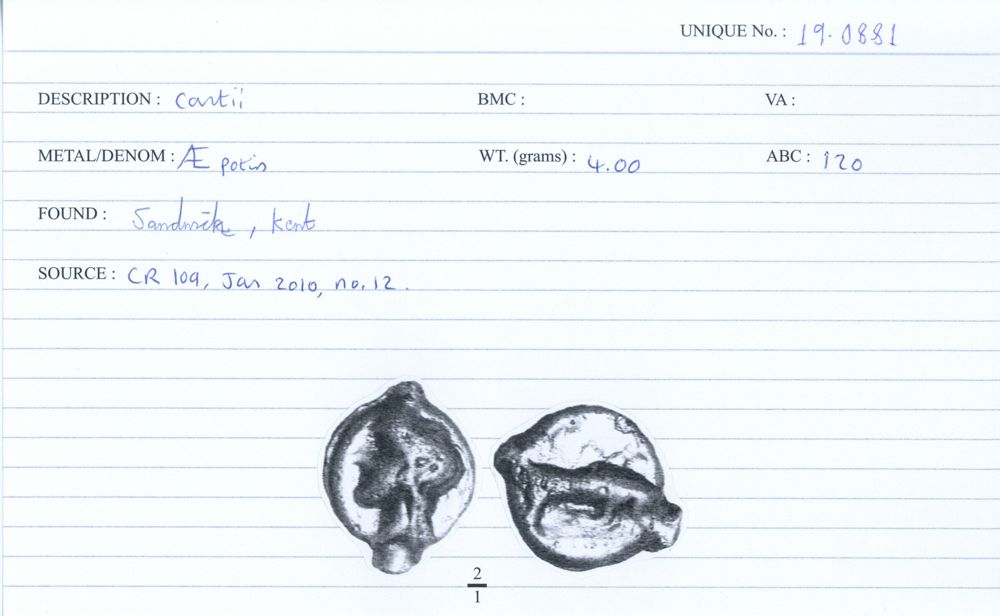 UNIQUE No. : 19.0881
DESCRIPTION : Cantii BMC : VA :
METAL/DENOM : Æ potin WT. (grams) : 4.00 ABC : 120
FOUND : Sandwich, Kent
SOURCE : CR 109, Jan 2010, no.12.
2
1